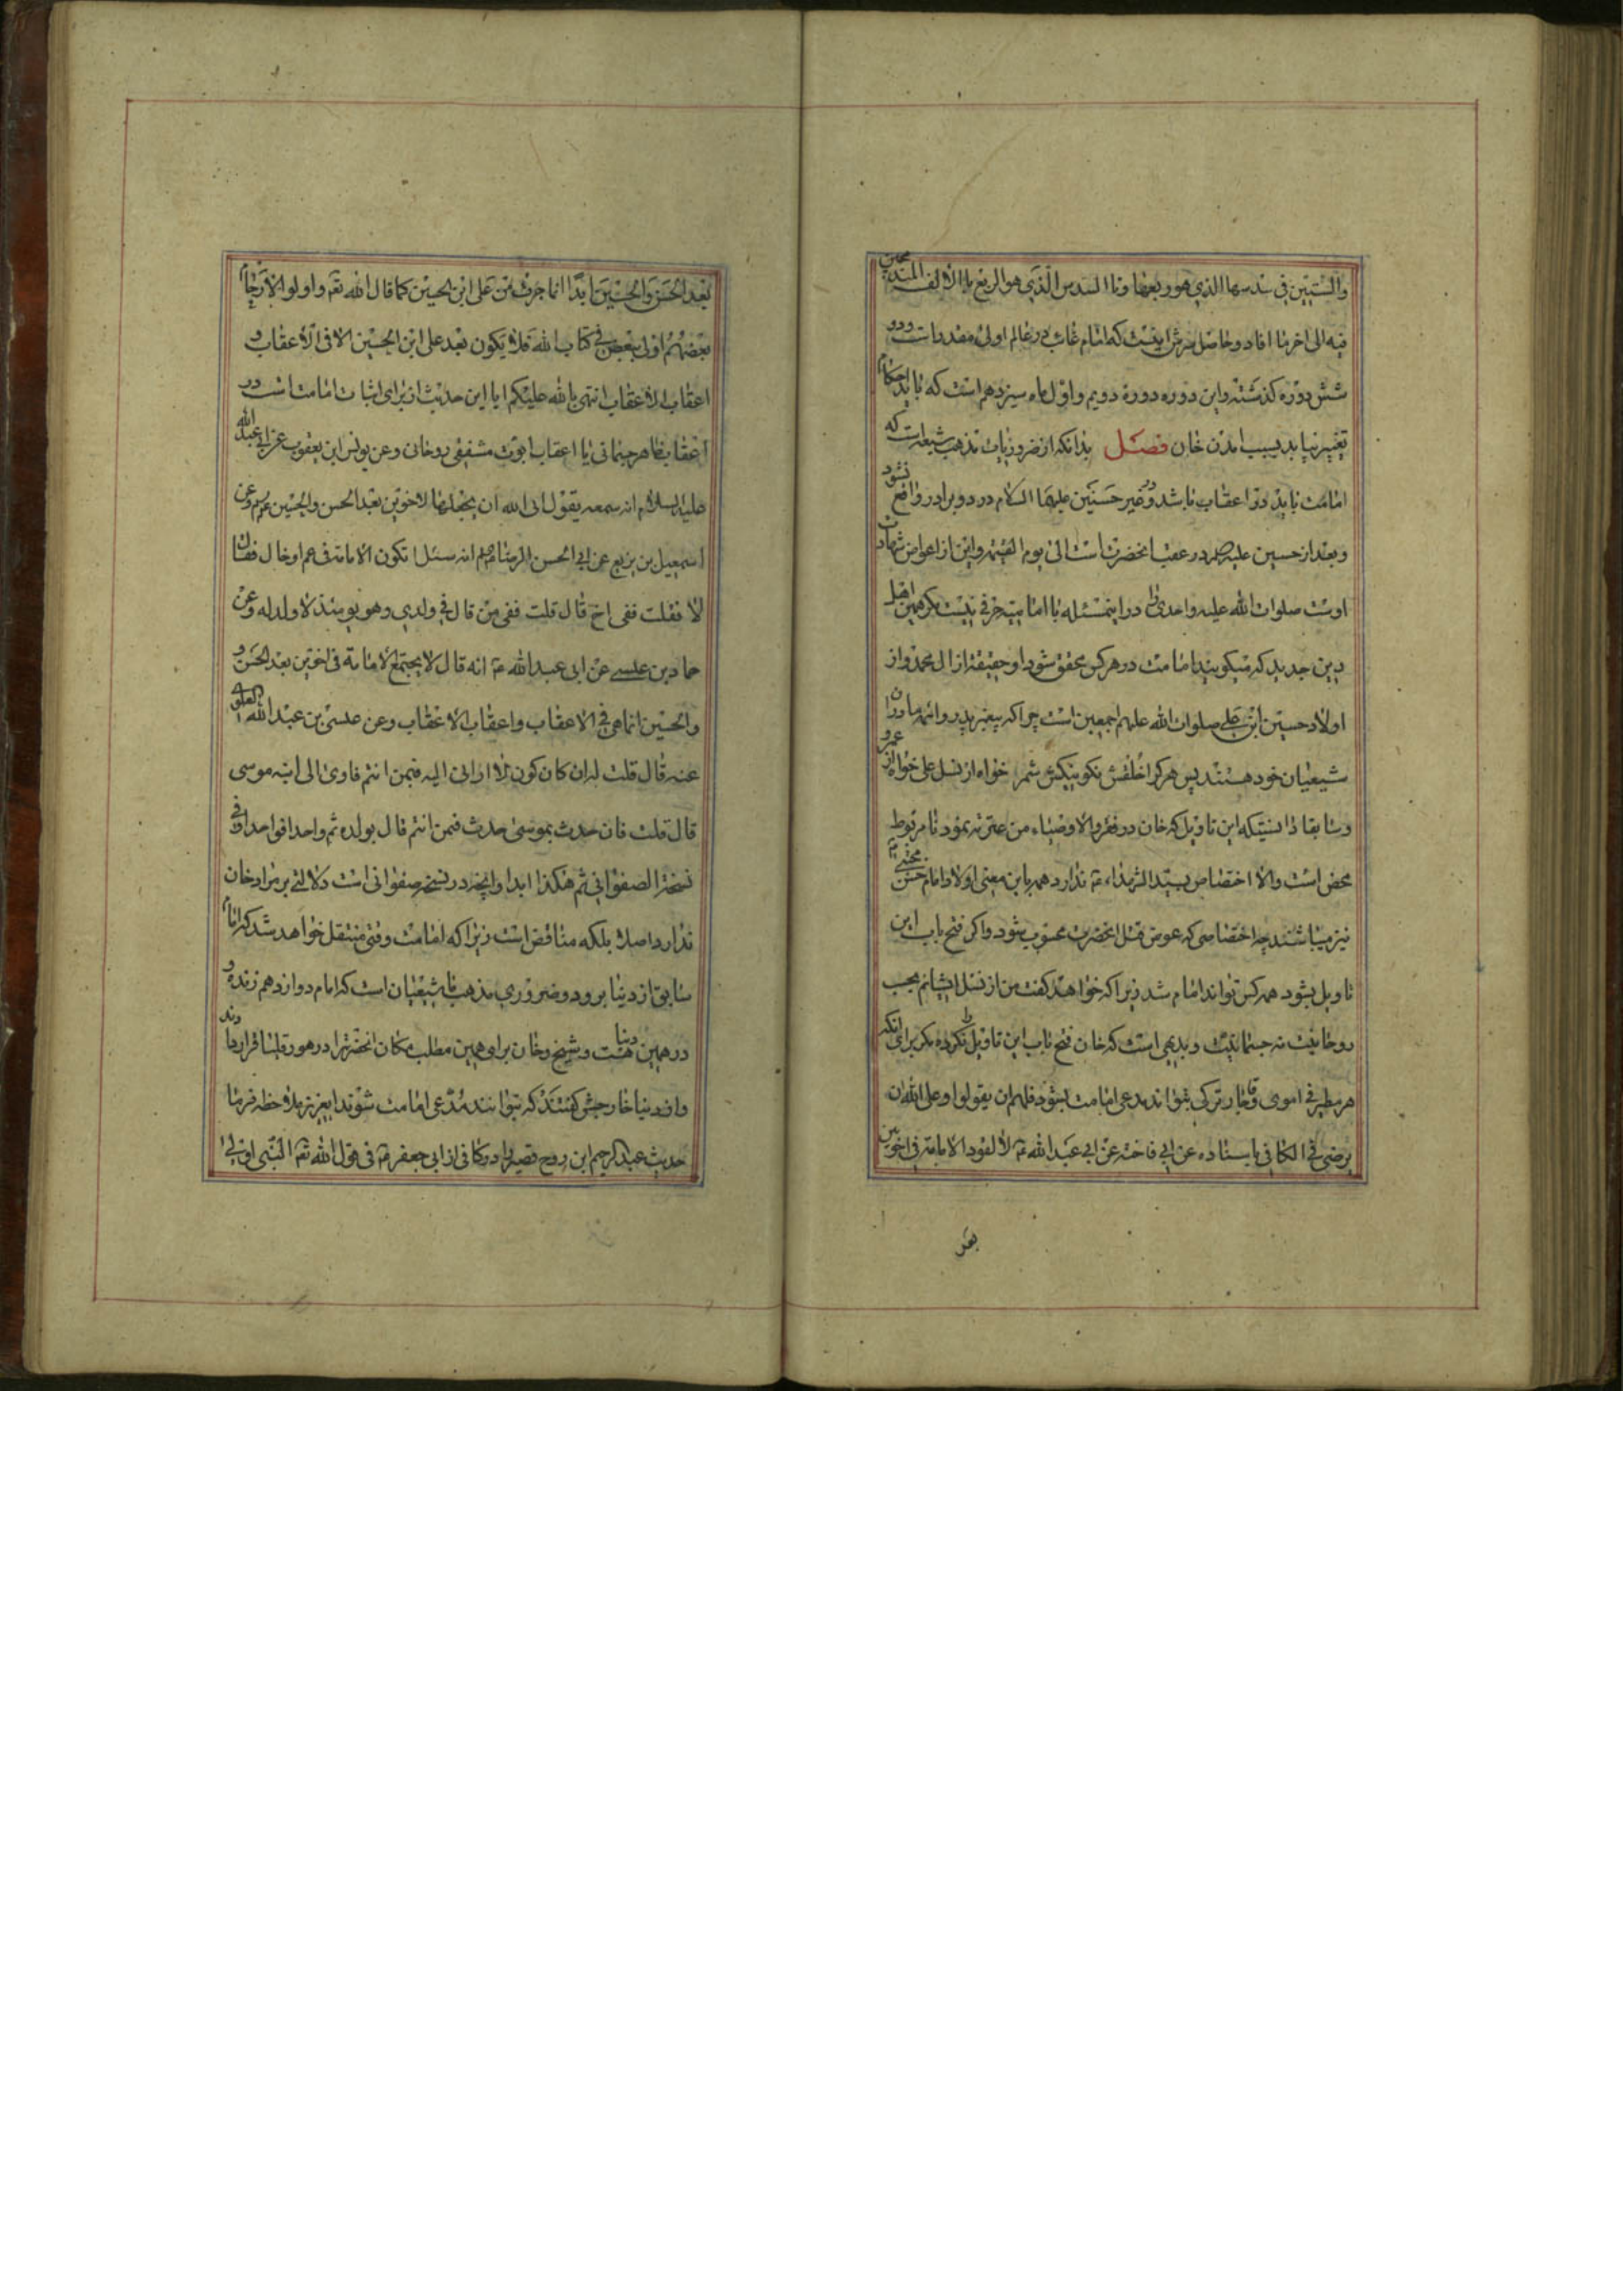 والستین فی سدسها الذی هو ربعها و ناالسدس الذی هو الربع یا الالف المندمجان
فیه الی اخر ما افاد و حاصل اینست که امام غائب در عالم اولی مقدر است و دو
شش دوره کذشته و این دوره دوره دویم و اول ماه سیزدهم است که باید احکام
تغییر بیابد بسبب امدن خان فصل بدانکه از ضروریات مذهب شیعه است که
امامت باید در اعقاب باشد و در غیر حسنین علیهما السلام در دو برادر واقع نشود
و بعد از حسین علیه در عقب انحضرت است الی یوم القیمه و این از اعواض شهادت
اوست صلوات الله علیه و احدی را در اینمسئله با امامیه حرفی نیست مکر همین اهل
دین جدید که میکویند امامت در هر کس محقق شود او حقیقة از ال محمد و از
اولاد حسین ابن علی صلوات الله علیهم اجمعین است چرا که پیغمبر پدر روحانی
شیعیان خود هستند پس هر کرا خلقش نکو نیکش شمر خواه از نسل علی خواه از عمرو
و سابقا دانستیکه این تاویل که خان در فقره الاوصیاء من عترته نموده نامربوط
محض است و الا اختصاص بسید الشهداء ع ندارد همه باین معنی اولاد امام حسن مجتبی ع
نیز میباشند چه اختصاصی که عوض قتل انحضرت محسوب شود و اکر فتح باب این
تاویل بشود همه کس تواند امام شد زیرا که خواهد کفت من از نسل ایشانم بحسب
روحانیت نه جسمانیت و بدیهی است که خان فتح باب این تاویل نکرده مکر برای انکه
هر مطیر فی اموی و قاجار ترکی بتواند مدعی امامت بشود فلهم ان یقولوا و علی الله ان
یرضی فی الکافی باسناده عن ابی فاخته عن ابی عبد الله ع لا تعود الامامة فی اخوین
بعد
بعد الحسن و الحسین ابدا انما جرت من علی ابن الحسین کما قال الله تع و اولو الارحام
بعضهم اولی ببعض فی کتاب الله فلا یکون بعد علی ابن الحسین الا فی الاعقاب و
اعقاب الاعقاب انتهی بالله علیکم ایا این حدیث از برای اثبات امامت است در
اعقاب ظاهر جسمانی یا اعقاب ابوت مشفقی روحانی و عن یونس ابن یعقوب عن ابی عبد الله
علیه السلام انه سمعه یقول ابی الله ان یجعلها لاخوین بعد الحسن و الحسین ع و عن
اسمعیل بن بزیع عن ابی الحسن الرضا انه سئل اتکون الامامة فی عم او خال فقال
لا فقلت ففی اخ قال لا قلت ففی من قال فی ولدی و هو یومئذ لا ولد له و عن
حماد بن عیسی عن ابی عبد الله ع انه قال لا یجتمع الامامة فی اخوین بعد الحسن و
و الحسین انما هی فی الاعقاب و اعقاب الاعقاب و عن عیسی بن عبد الله العلوی
عنه قال قلت له ان کان کون لا ارانی الیه فبمن ائتم فاومی الی ابنه موسی
قال قلت فان حدث بموسی حدث فبمن ائتم قال بولده ثم واحدا فواحدا و فی
نسخة الصفوانی ثم هکذا ابدا و انچه در نسخه صفوانی است دلالتی بر مراد خان
ندارد اصلا بلکه مناقض است زیرا که امامت وقتی منتقل خواهد شد که امام
سابق از دنیا برود و ضروری مذهب ما شیعیان است که امام دوازدهم زنده و
در همین دنیا هست و شیخ و خان برای همین مطلب مکان انحضرترا در هورقلیا قرار دادند
و از دنیا خارجش کفتند که بتوانند مدعی امامت شوند ایعزیز ملاحظه فرما
حدیث عبد الرحیم ابن روح قصیر را در کافی از ابی جعفر ع فی قول الله تع النبی اولی